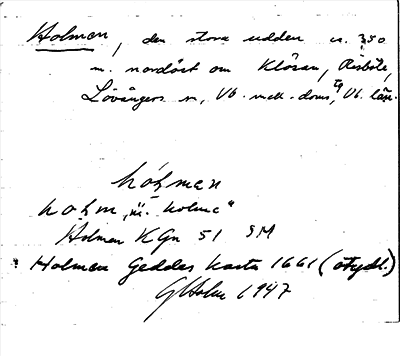 Holmen, den stora udden ca. 350
m. nordöst om Klösan, Risböle,
Lövångers sn, Vb. mell. doms, Vb. län.
hólmen
holm, m. "holme"
Holmen KGn 51 SM
Holmen Geddas karta 1661 (otydl.)
GHolm 1947